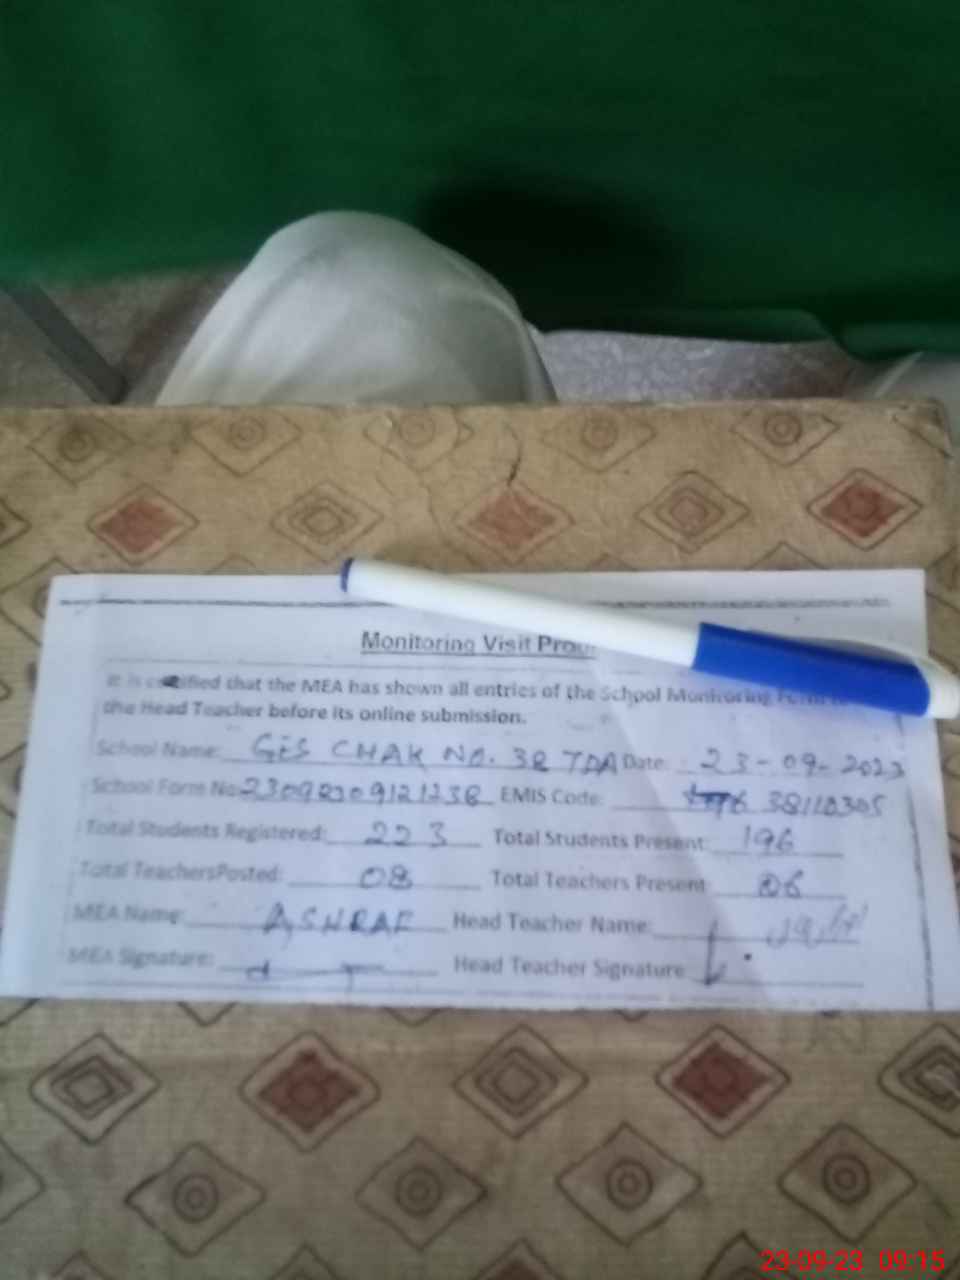 Monitoring Visit
It is certified that the MEA has shown all entries of the School Monitoring Form to
the Head Teacher before its online submission.
School Name: GES CHAK NO. 38 TDA Date: 23-09-2023
School Form No: EMIS Code: 38110305
Total Students Registered: 223 Total Students Present: 196
Total TeachersPosted: 08 Total Teachers Present: 06
MEA Name: ASHRAF Head Teacher Name:
MEA Signature: Head Teacher Signature
23-09-23 09:15